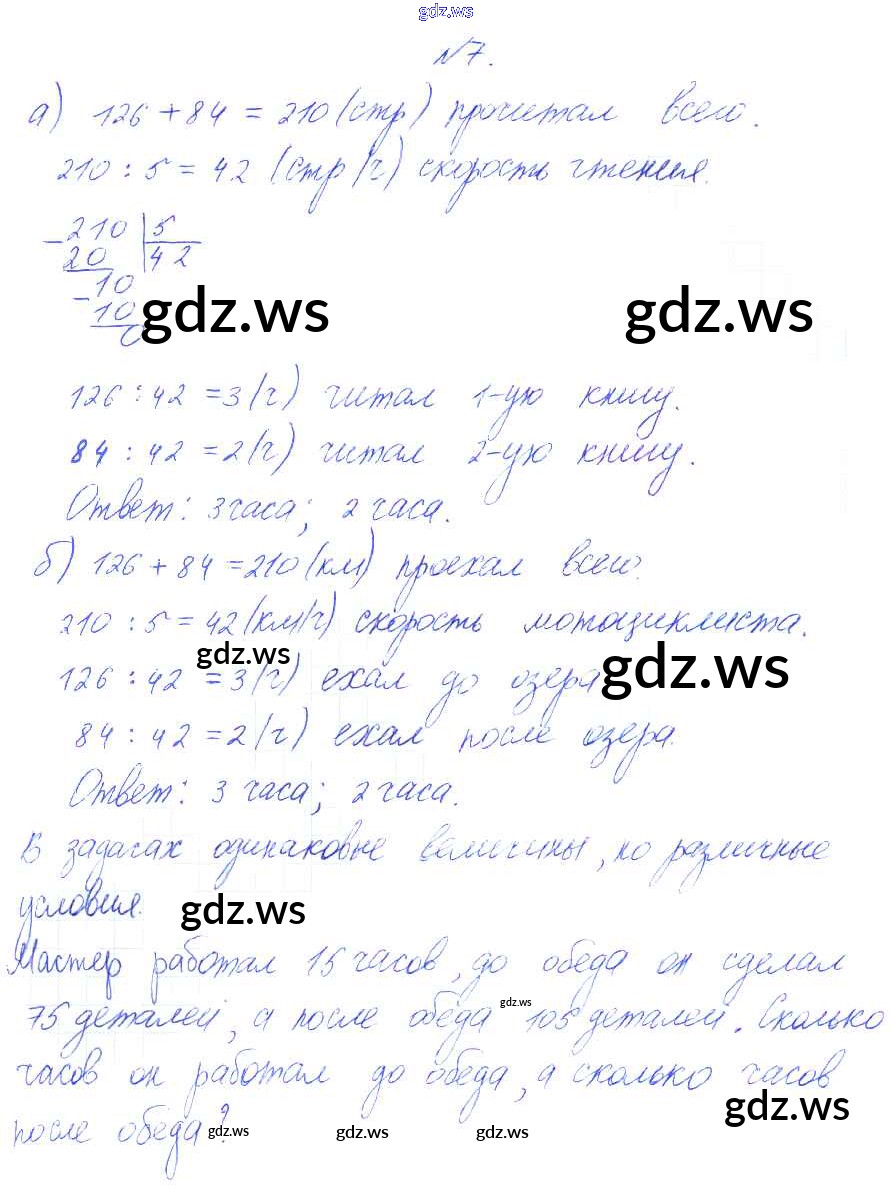 gdz.ws
№7.
а) 126 + 84 = 210 (стр) прочитал всего.
210 : 5 = 42 (стр/ч) скорость чтения.
- 210 | 5
20 | 42
- 10
10
0
gdz.ws gdz.ws
126 : 42 = 3 (ч) читал 1-ую книгу.
84 : 42 = 2 (ч) читал 2-ую книгу.
Ответ: 3 часа; 2 часа.
б) 126 + 84 = 210 (км) проехал всего.
210 : 5 = 42 (км/ч) скорость мотоциклиста.
gdz.ws gdz.ws
126 : 42 = 3 (ч) ехал до озера
84 : 42 = 2 (ч) ехал после озера.
Ответ: 3 часа; 2 часа.
В задачах одинаковые величины, но различные
условия.
gdz.ws
Мастер работал 15 часов, до обеда он сделал
75 деталей, а после обеда 105 деталей. Сколько
gdz.ws
часов он работал до обеда, а сколько часов
gdz.ws
после обеда?
gdz.ws gdz.ws gdz.ws